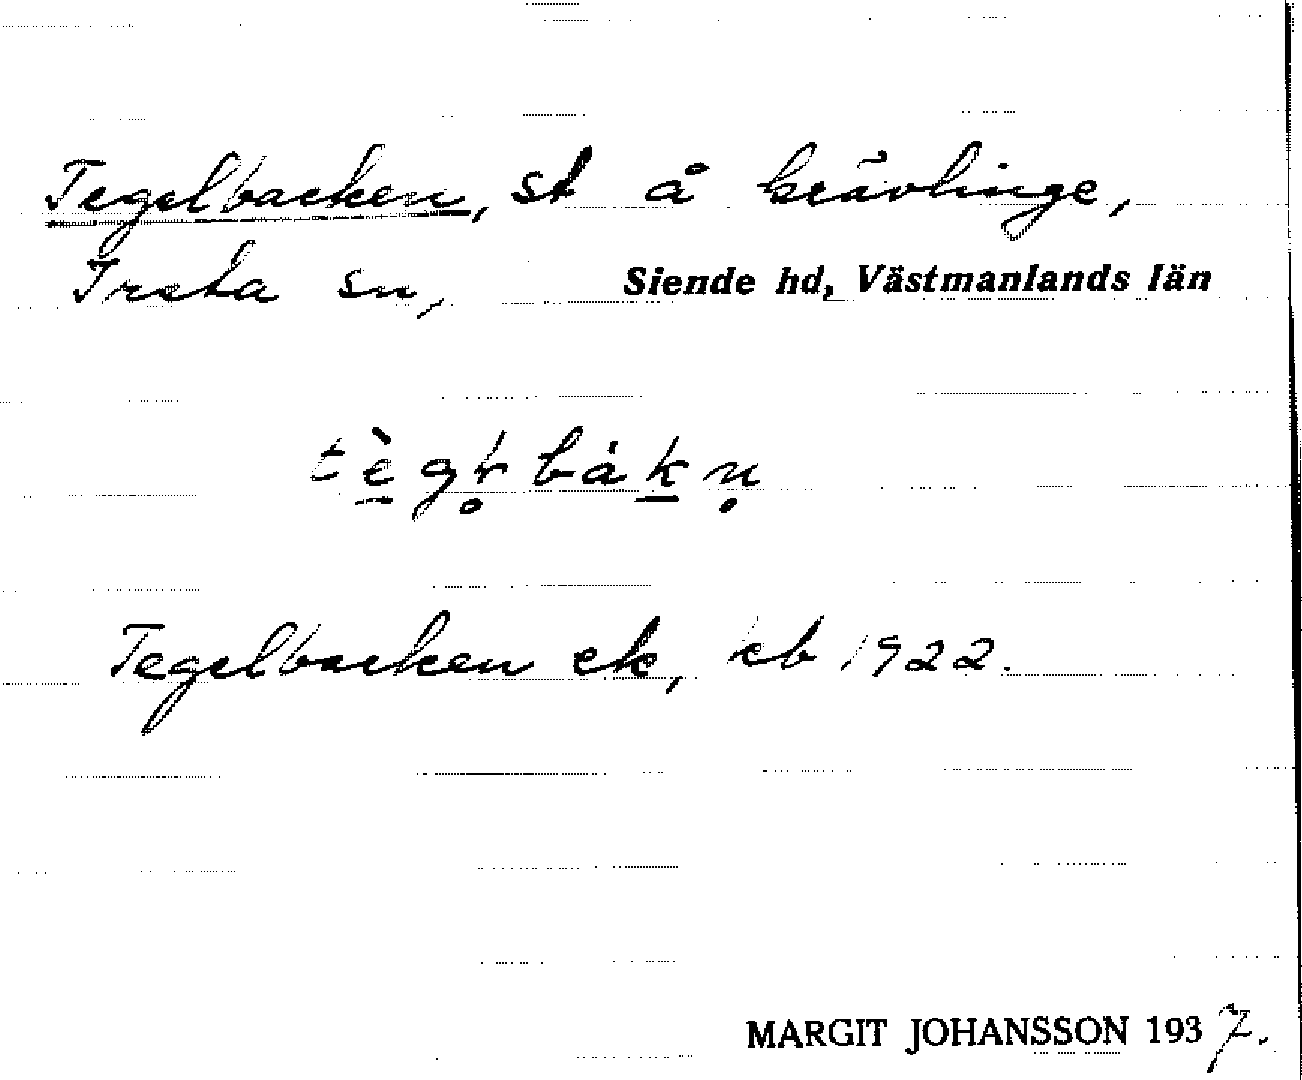 Tegelbacken, st å Krävlinge,
Irsta sn, Siende hd, Västmanlands län
tègr̥bákn̥
Tegelbacken ek, kb 1922.
MARGIT JOHANSSON 1937.